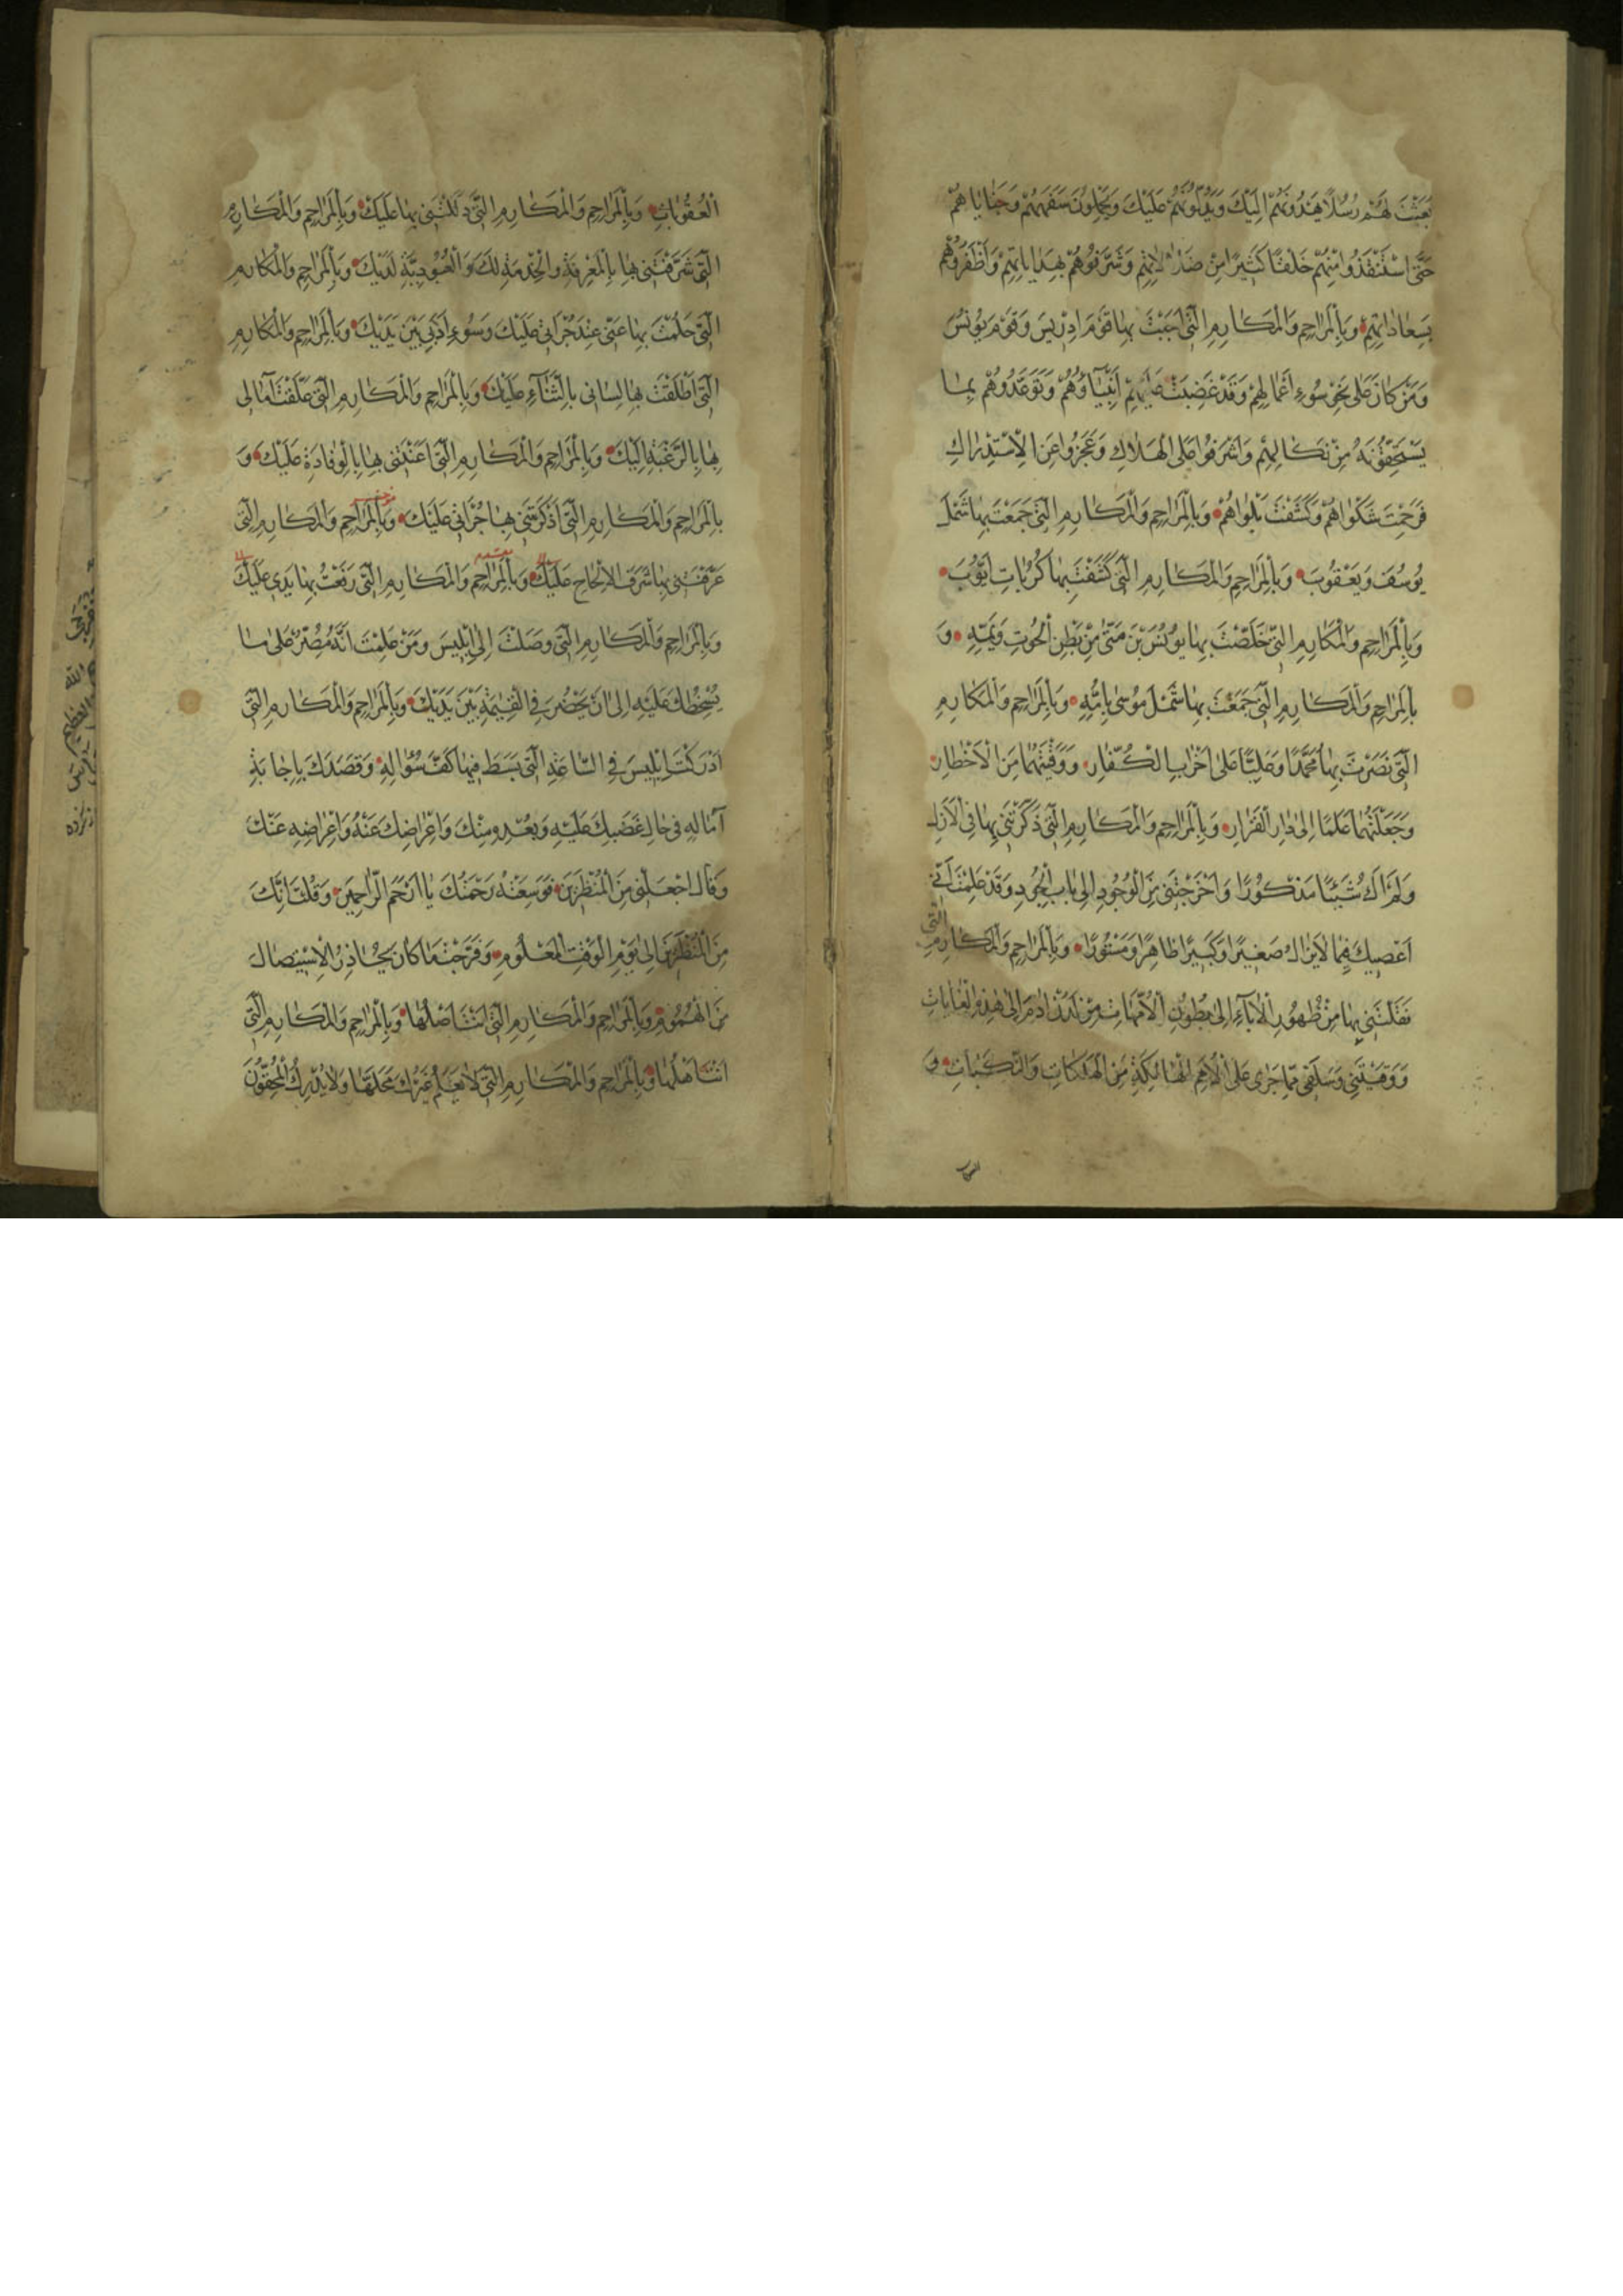 بَعَثْتَ لَهُمْ رُسُلًا يَهْدُونَهُمْ اِلَيْكَ وَيَدُلُّونَهُمْ عَلَيْكَ وَيَحْمِلُونَ سَفَهَهُمْ وَجَنَايَاهُمْ
حَتّٰى اسْتَنْقَذُوا مِنْهُمْ خَلْقًا كَثِيرًا مِنْ ضَلَالَاتِهِمْ وَشَرَّفُوهُمْ بِهِدَايَاتِهِمْ وَاَظْفَرُوهُمْ
بِسَعَادَاتِهِمْ وَبِالْمَرَاحِمِ وَالْمَكَارِمِ الَّتِى اَجَبْتَ بِهَا قَوْمَ اِدْرِيسَ وَقَوْمَ يُونُسَ
وَمَنْ كَانَ عَلٰى نَحْوِ سُوءِ اَعْمَالِهِمْ وَقَدْ غَضِبَتْ عَلَيْهِمْ اَنْبِيَآؤُهُمْ وَتَوَعَّدُوهُمْ بِمَا
يَسْتَحِقُّونَهُ مِنْ نَكَالِهِمْ وَاَشْرَفُوا عَلَى الْهَلَاكِ وَعَجَزُوا عَنِ الْاِسْتِدْرَاكِ
فَرَحِمْتَ شَكْوَاهُمْ وَكَشَفْتَ بَلْوَاهُمْ وَبِالْمَرَاحِمِ وَالْمَكَارِمِ الَّتِى جَمَعْتَ بِهَا شَمْلَ
يُوسُفَ وَيَعْقُوبَ وَبِالْمَرَاحِمِ وَالْمَكَارِمِ الَّتِى كَشَفْتَ بِهَا كُرُبَاتِ اَيُّوبَ
وَبِالْمَرَاحِمِ وَالْمَكَارِمِ الَّتِى خَلَّصْتَ بِهَا يُونُسَ بْنَ مَتّٰى مِنْ بَطْنِ الْحُوتِ وَيَمِّهِ وَ
بِالْمَرَاحِمِ وَالْمَكَارِمِ الَّتِى جَمَعْتَ بِهَا شَمْلَ مُوسٰى بِاُمِّهِ وَبِالْمَرَاحِمِ وَالْمَكَارِمِ
الَّتِى نَصَرْتَ بِهَا مُحَمَّدًا وَعَلِيًّا عَلٰى اَحْزَابِ الْكُفَّارِ وَوَقَيْتَهُمَا مِنَ الْاَخْطَارِ
وَجَعَلْتَهُمَا عَلَمًا اِلٰى دَارِ الْقَرَارِ وَبِالْمَرَاحِمِ وَالْمَكَارِمِ الَّتِى ذَكَرْتَنِى بِهَا فِى الْاَزَلِ
وَلَمْ اَكُ شَيْئًا مَذْكُورًا وَاَخْرَجْتَنِى مِنَ الْوُجُودِ اِلٰى بَابِ الْجُودِ وَقَدْ عَلِمْتَ اَنِّى
اَعْصِيكَ فِيمَا لَا يَزَالُ صَغِيرًا وَكَبِيرًا ظَاهِرًا وَمَسْتُورًا وَبِالْمَرَاحِمِ وَالْمَكَارِمِ الَّتِى
نَقَلْتَنِى بِهَا مِنْ ظُهُورِ الْاٰبَآءِ اِلٰى بُطُونِ الْاُمَّهَاتِ مِنْ لَدُنْ اٰدَمَ اِلٰى هٰذِهِ الْغَايَاتِ
وَوَقَيْتَنِى وَسَلَفِى مِمَّا جَرٰى عَلَى الْاُمَمِ الْهَالِكَةِ مِنَ الْهَلَكَاتِ وَالنَّكَبَاتِ وَ
الْعُقُوبَاتِ وَبِالْمَرَاحِمِ وَالْمَكَارِمِ الَّتِى دَلَلْتَنِى بِهَا عَلَيْكَ وَبِالْمَرَاحِمِ وَالْمَكَارِمِ
الَّتِى شَرَّفْتَنِى بِهَا بِالْمَعْرِفَةِ وَالْخِدْمَةِ لَكَ وَالْعُبُودِيَّةِ لَدَيْكَ وَبِالْمَرَاحِمِ وَالْمَكَارِمِ
الَّتِى حَلُمْتَ بِهَا عَنِّى عِنْدَ جُرْاَتِى عَلَيْكَ وَسُوءِ اَدَبِى بَيْنَ يَدَيْكَ وَبِالْمَرَاحِمِ وَالْمَكَارِمِ
الَّتِى اَطْلَقْتَ بِهَا لِسَانِى بِالثَّنَآءِ عَلَيْكَ وَبِالْمَرَاحِمِ وَالْمَكَارِمِ الَّتِى عَلَّقْتَ اٰمَالِى
بِهَا بِالرَّغْبَةِ اِلَيْكَ وَبِالْمَرَاحِمِ وَالْمَكَارِمِ الَّتِى بِهَا بِالْوِفَادَةِ عَلَيْكَ وَ
بِالْمَرَاحِمِ وَالْمَكَارِمِ الَّتِى اَذْكَرْتَنِى بِهَا جُرْاَتِى عَلَيْكَ وَبِالْمَرَاحِمِ وَالْمَكَارِمِ الَّتِى
عَرَّفْتَنِى بِهَا شَرَفَ الْاِلْحَاحِ عَلَيْكَ وَبِالْمَرَاحِمِ وَالْمَكَارِمِ الَّتِى رَفَعْتُ بِهَا يَدِى عَلَيْكَ
وَبِالْمَرَاحِمِ وَالْمَكَارِمِ الَّتِى وَصَلَتْ اِلٰى اِبْلِيسَ وَمَنْ عَلِمْتَ اَنَّهُ مُصِرٌّ عَلٰى مَا
يُسْخِطُكَ عَلَيْهِ اِلٰى اَنْ يَحْضُرَ فِى الْقِيٰمَةِ بَيْنَ يَدَيْكَ وَبِالْمَرَاحِمِ وَالْمَكَارِمِ الَّتِى
اَدْرَكْتَ اِبْلِيسَ فِى السَّاعَةِ الَّتِى بَسَطَ فِيهَا كَفَّ سُؤَالِهِ وَقَصَدَكَ بِاِجَابَةِ
اٰمَالِهِ فِى حَالِ غَضَبِكَ عَلَيْهِ وَبُعْدِهِ مِنْكَ وَاِعْرَاضِكَ عَنْهُ وَاِعْرَاضِهِ عَنْكَ
وَقَالَ اجْعَلْنِى مِنَ الْمُنْظَرِينَ فَوَسِعَتْهُ رَحْمَتُكَ يَا اَرْحَمَ الرَّاحِمِينَ وَقُلْتَ اِنَّكَ
مِنَ الْمُنْظَرِينَ اِلٰى يَوْمِ الْوَقْتِ الْمَعْلُومِ وَفَرَّجْتَ مَا كَانَ يُحَاذِرُ الْاِسْتِيصَالَ
مِنَ الْهُمُومِ وَبِالْمَرَاحِمِ وَالْمَكَارِمِ الَّتِى اَنْتَ اَصْلُهَا وَبِالْمَرَاحِمِ وَالْمَكَارِمِ الَّتِى
اَنْتَ اَهْلُهَا وَبِالْمَرَاحِمِ وَالْمَكَارِمِ الَّتِى لَا يَعْلَمُ غَيْرُكَ مَحَلَّهَا وَلَا يُدْرِكُ الْمُحِقُّونَ